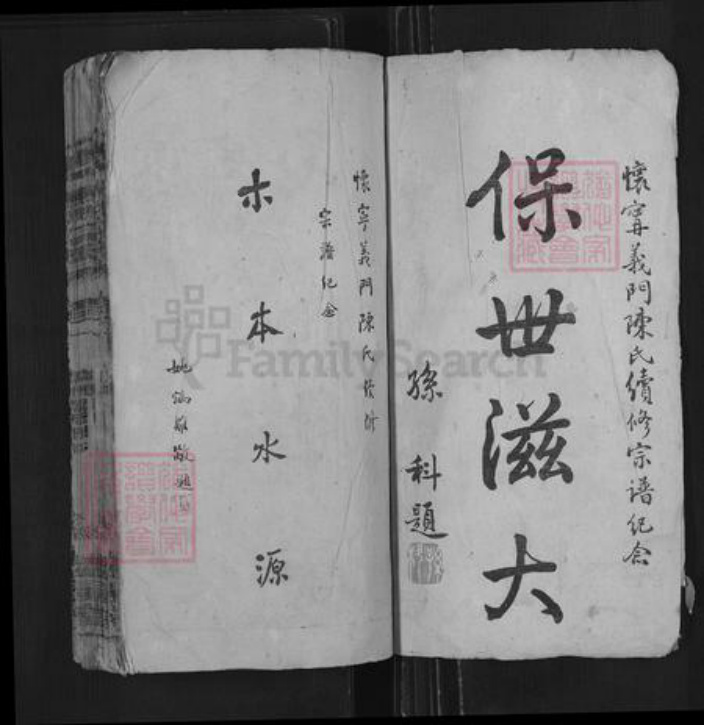 懷甯義門陳氏續修宗譜紀念
保世滋大
孫科題
懷寧義門陳氏續修
宗譜紀念
木本水源
題
FamilySearch